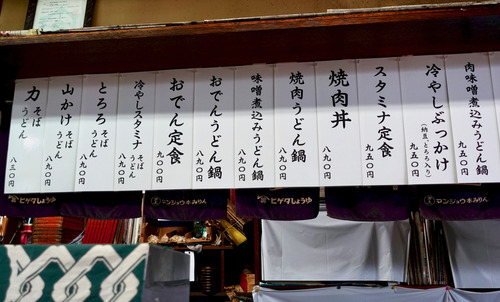 肉味噌煮込みうどん鍋
九五〇円
冷やしぶっかけ
(納豆・とろろ入り)
九五〇円
スタミナ定食
九五〇円
焼肉丼
八九〇円
焼肉うどん鍋
八九〇円
味噌煮込みうどん鍋
八九〇円
おでんうどん鍋
八九〇円
おでん定食
九〇〇円
冷やしスタミナ
そば
うどん
八九〇円
とろろ
そば
うどん
八九〇円
山かけ
そば
うどん
八九〇円
力
そば
うどん
八三〇円
ヒゲタしょうゆ
マンジョウ本みりん
ヒゲタしょうゆ
マンジョウ本みりん